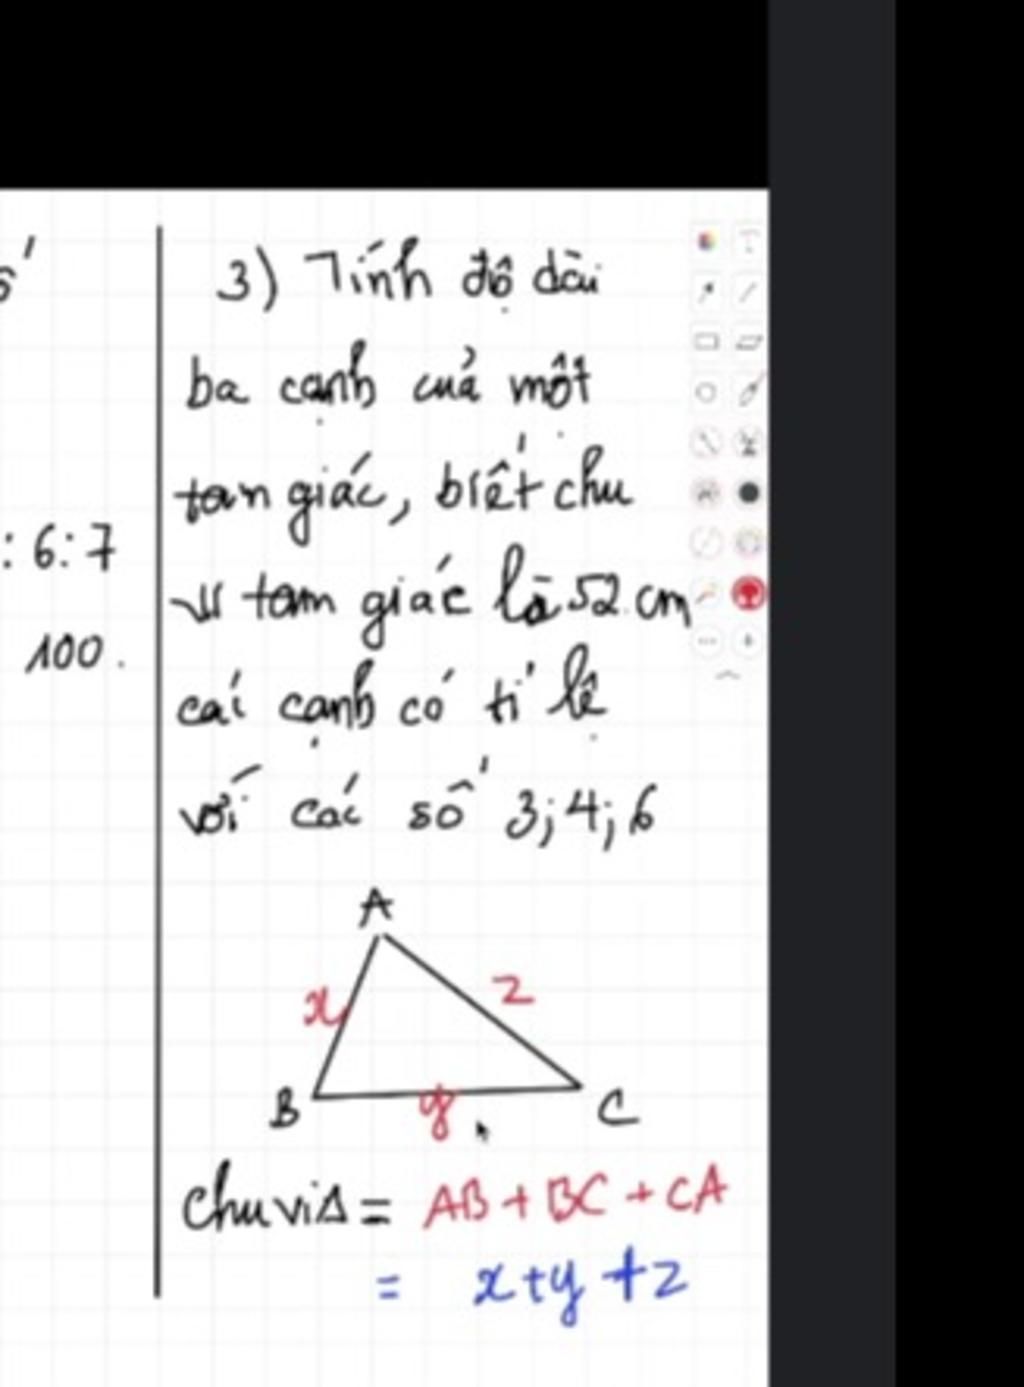 : 6:7
100.
3) Tính độ dài
ba cạnh của một
tam giác, biết chu
vi tam giác là 52 cm
các cạnh có tỉ lệ
với các số 3; 4; 6
A
x z
B y C
chu vi Δ = AB + BC + CA
= x + y + z